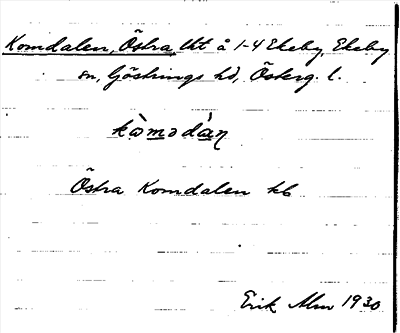 Komdalen, Östra, Utt å 1-4 Ekeby, Ekeby
sn, Göstrings hd, Österg. l.
kòmədàn
Östra Komdalen
Erik Alm 1930